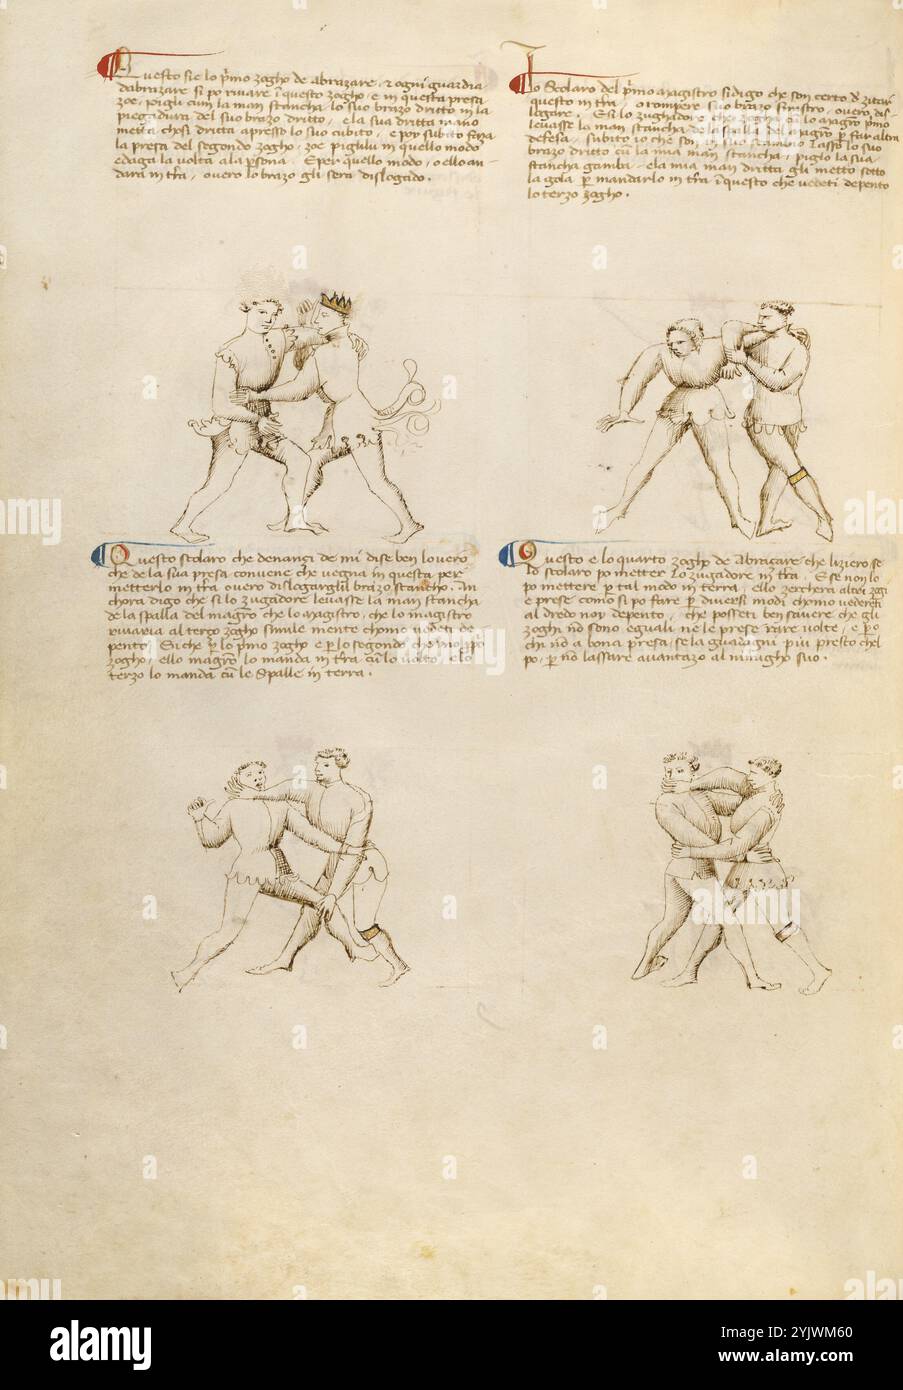 Questo sie lo p'mo zogho de abrazare, & ogni guardia
dabrazare si po rivare i questo zogho, e in questa presa
zoe, pigli cum la man stancha lo suo brazo dritto in la
piegadura del suo brazo dritto, e la sua dritta mano
metta chosi dritta apresso lo suo cubito, e poy subito faza
la presa del segondo zogho, zoe piglilu in quello modo
e daga la volta a la p'sona. E per quello modo, o ello an-
dara in t'ra, overo lo brazo gli sera dislogado.
Lo Scolaro del p'mo magistro si digo che son certo de zitar
questo in t'ra, o rompere suo brazo sinistro, overo dis-
logare. E si lo zughadore che zogha cum lo magistro p'mo
levasse la man stancha de la spalla del magistro per far altra
defesa, subito io che son in suo scambio lasso lo suo
brazo dritto cum la mia man stancha, e piglo la sua
stancha gamba, e la mia man dritta gli metto sotto
la gola per mandarlo in t'ra i questo che vedeti depento
lo terzo zogho.
Questo scolaro che denançi de mi dise ben lo vero
che de la sua presa convene che vegna in questa per
metterlo in t'ra overo dislogargli'l brazo stancho. An-
chora digo che si lo zugadore levasse la man stancha
de la spalla del magistro che lo magistro
rivaria al terço zogho similemente chomo vedeti de-
pento. Si che per lo p'mo zogho e per lo segondo che uno p'prio
zogho, ello magistro lo manda in t'ra cum lo volto, e lo
terzo lo manda cum le spalle in terra.
Questo e lo quarto zogho de abraçare che liziero se
lo scolaro po metter lo zugadore in t'ra. E se non lo
po mettere per tal modo in terra, ello zerchera altri zoghi
e prese como si po fare per diversi modi chomo vedereti
al dredo noy depento, che posseti ben savere che gli
zoghi non sono eguali ne le prese rare volte, e per zo
chi non a bona presa, se la guadagni piu presto chel
po, per non lassare avantazo al nimigho suo.
alamy
Image ID: 2YJWM60
www.alamy.com